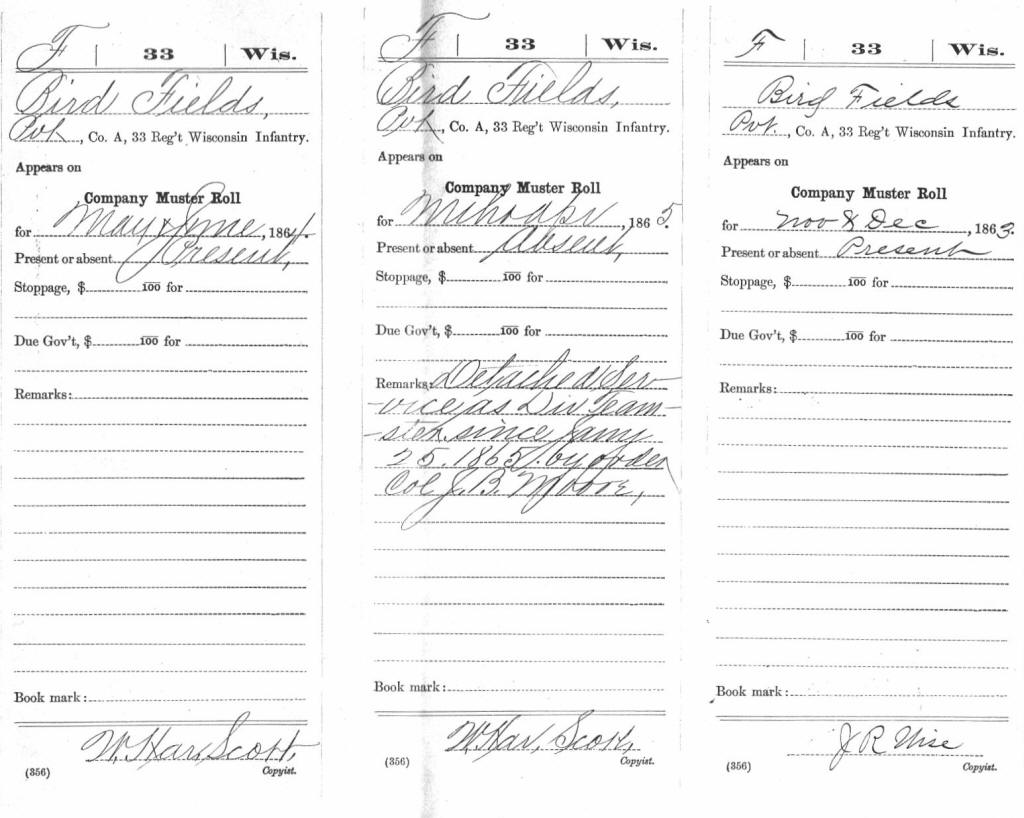 F | 33 | Wis.
Bird Fields,
Pvt., Co. A, 33 Reg't Wisconsin Infantry.
Appears on
Company Muster Roll
for May & June, 1864.
Present or absent Present,
Stoppage, $ 100 for
Due Gov't, $ 100 for
Remarks:
Book mark:
W. Har. Scott,
(356) Copyist.
F | 33 | Wis.
Bird Fields,
Pvt, Co. A, 33 Reg't Wisconsin Infantry.
Appears on
Company Muster Roll
for Mch & Apr, 1865.
Present or absent Absent,
Stoppage, $ 100 for
Due Gov't, $ 100 for
Remarks: Detached Ser-
-vice as Div Team-
-ster since Jany
25, 1865, by order
Col J. B. Moore,
Book mark:
W. Har. Scott,
(356) Copyist.
F | 33 | Wis.
Bird Fields
Pvt., Co. A, 33 Reg't Wisconsin Infantry.
Appears on
Company Muster Roll
for Nov & Dec, 1863.
Present or absent Present
Stoppage, $ 100 for
Due Gov't, $ 100 for
Remarks:
Book mark:
J R Wise
(356) Copyist.